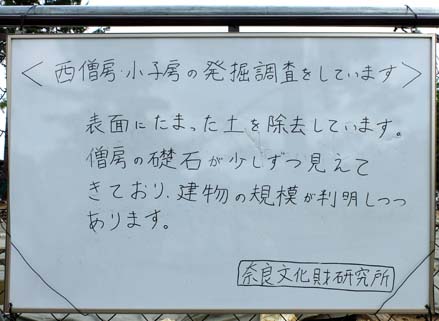 ＜西僧房・小子房の発掘調査をしています＞
表面にたまった土を除去しています。
僧房の礎石が少しずつ見えて
きており、建物の規模が判明しつつ
あります。
奈良文化財研究所